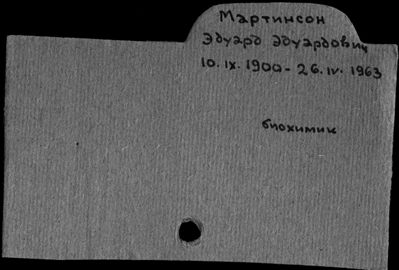 Мартинсон
Эдуард Эдуардович
10.IX.1900 - 26.IV.1963
биохимик